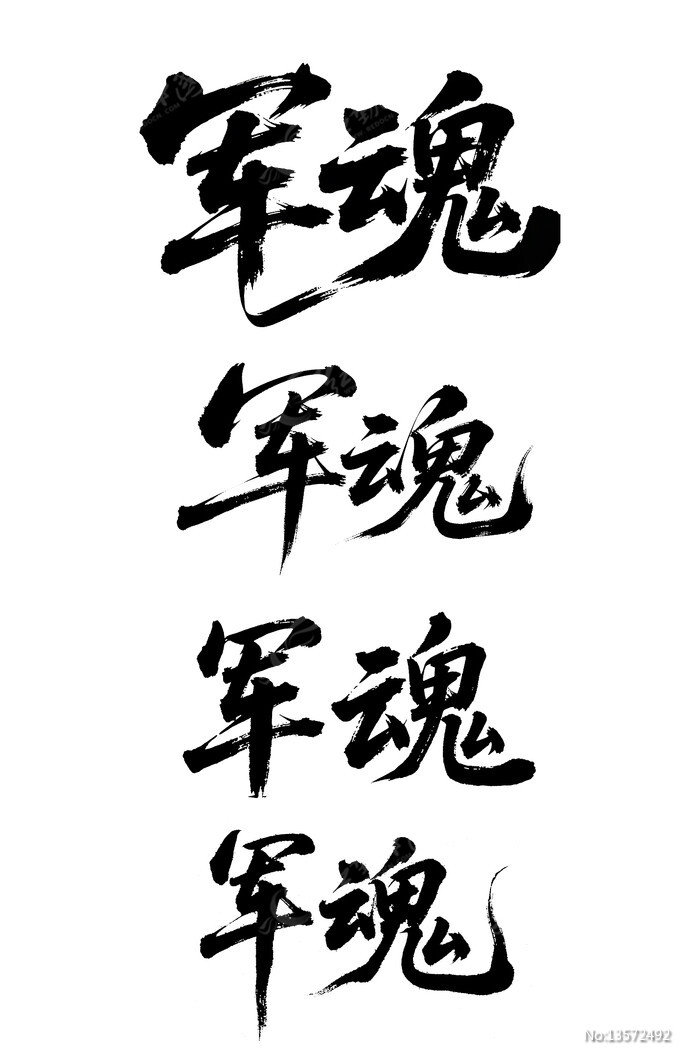 军魂
军魂
军魂
军魂
No:13572492